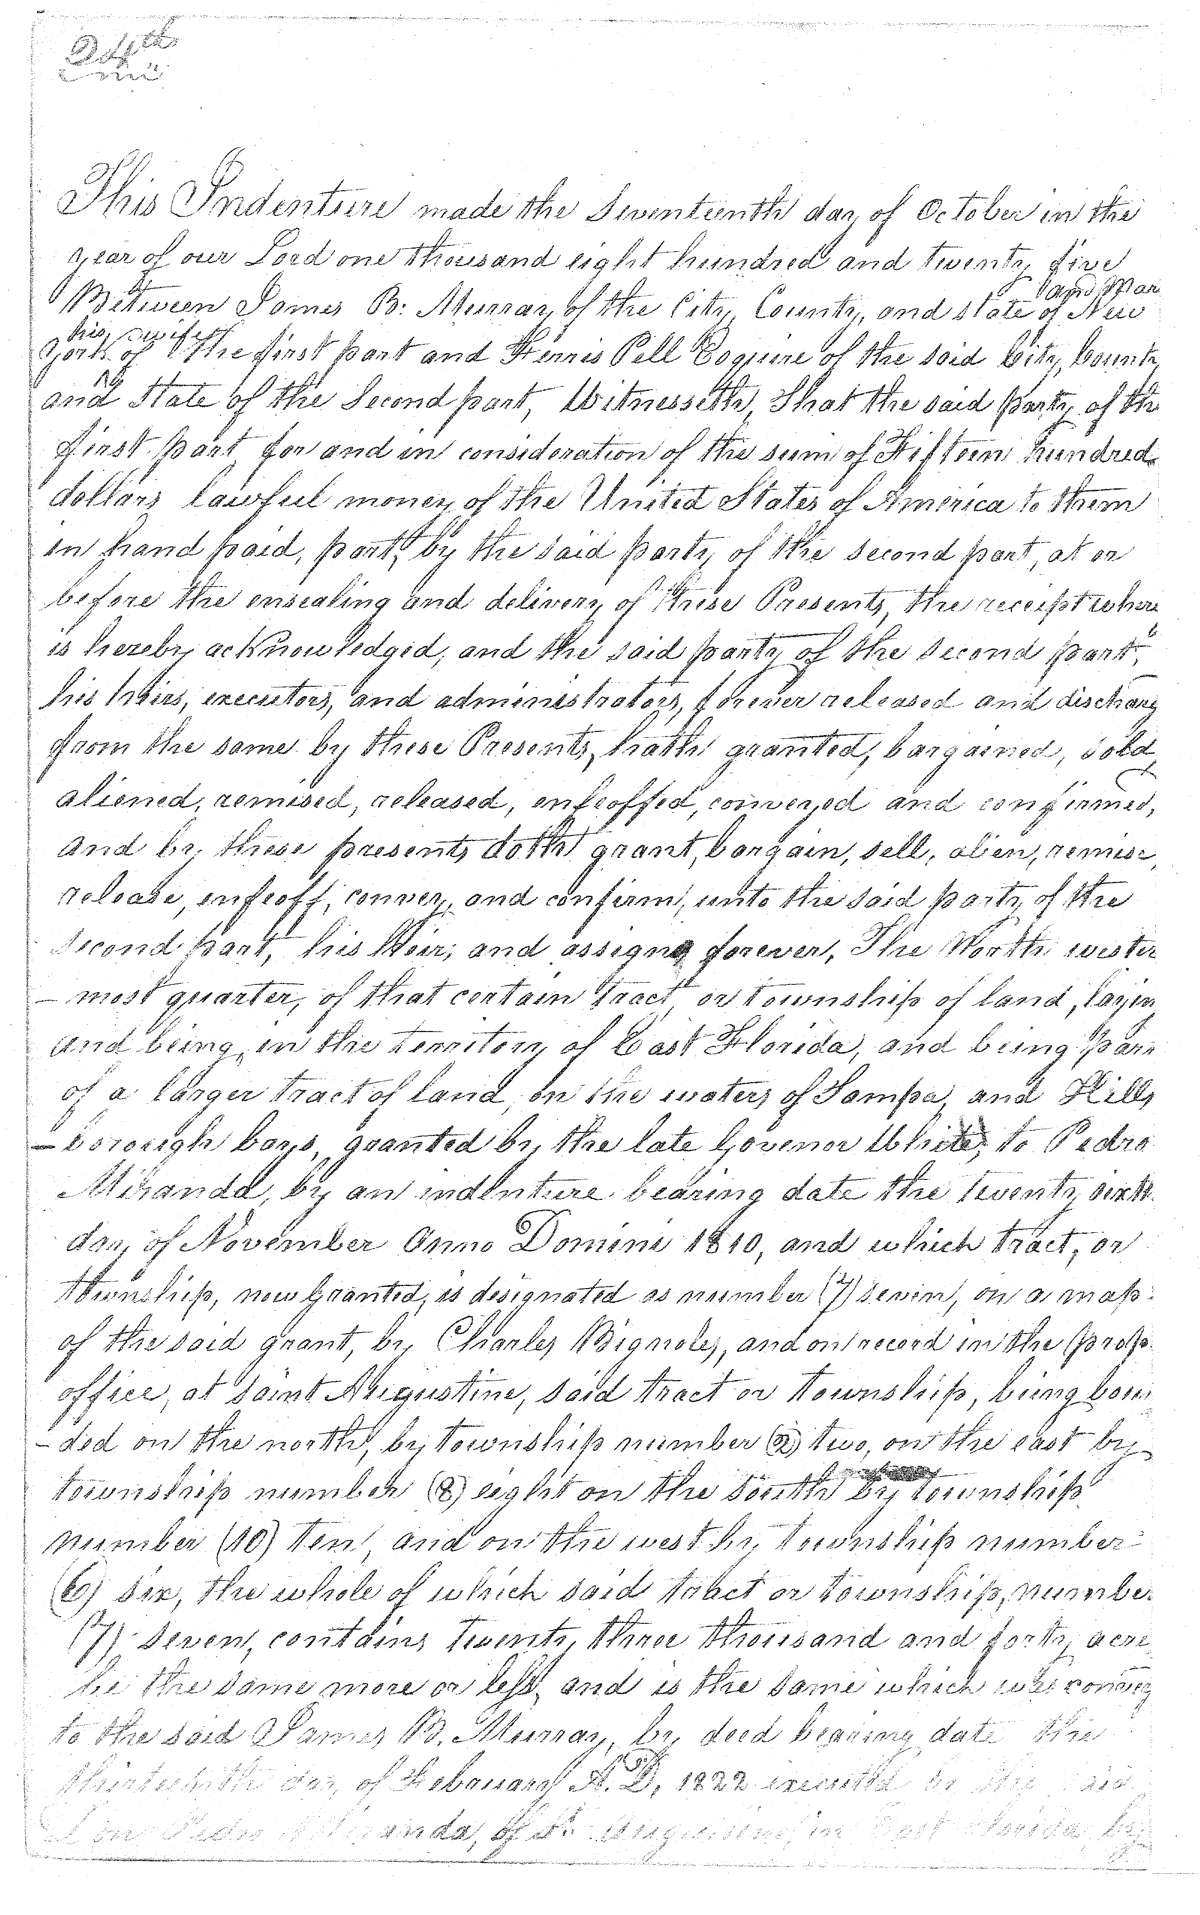 This Indenture made the Seventeenth day of October in the
year of our Lord one thousand eight hundred and twenty five
and Mar
Between James B. Murray of the City, County, and state of New
his wife
York of the first part and Ferris Pell Esquire of the said City, County
and State of the Second part, Witnesseth, That the said party of the
first part for and in consideration of the sum of Fifteen hundred
dollars lawful money of the United States of America to them
in hand paid, part, by the said party of the second part, at or
before the ensealing and delivery of these Presents, the receipt where
is hereby acknowledged, and the said party of the second part,
his heirs, executors, and administrators, forever released and discharg
from the same by these Presents, hath granted, bargained, sold,
aliened, remised, released, enfeoffed, conveyed and confirmed,
and by these presents doth grant, bargain, sell, alien, remise,
release, enfeoff, convey, and confirm, unto the said party of the
second part, his Heirs and assigns forever, The North wester
- most quarter, of that certain tract or township of land, layin
and being in the territory of East Florida, and being part
of a larger tract of land on the waters of Tampa and Hills
- borough bays, granted by the late Govenor White, to Pedro
Miranda, by an indenture bearing date the twenty sixth
day of November Anno Domini 1810, and which tract, or
township, now Granted, is designated as number (7) seven, on a map
of the said grant, by Charles Vignoles, and on record in the prop
office, at Saint Augustine, said tract or township, being boun
- ded on the north, by township number (2) two, on the east by
township number (8) eight on the south by township
number (10) ten, and on the west by township number
(6) six, the whole of which said tract or township, numbe
(7) seven, contains twenty three thousand and forty acre
be the same more or less, and is the same which was convey
to the said James B. Murray, by deed bearing date the
thirteenth day of February A.D. 1822 executed by the said
Don Pedro Miranda, of St. Augustine, in East Florida, by